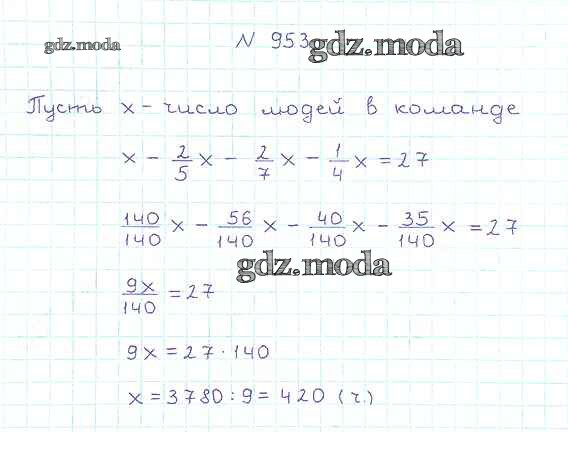 gdz.moda
N 953
gdz.moda
Пусть х - число людей в команде
х - 2/5 х - 2/7 х - 1/4 х = 27
140/140 х - 56/140 х - 40/140 х - 35/140 х = 27
gdz.moda
9х/140 = 27
9х = 27 · 140
х = 3780 : 9 = 420 (ч.)